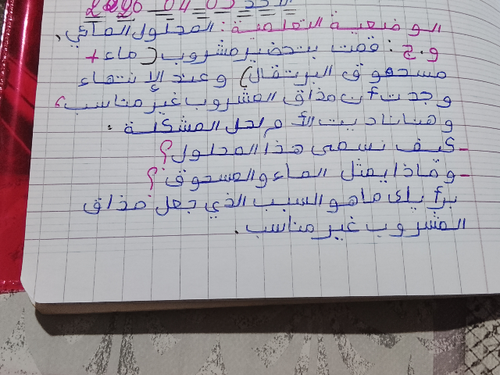 الأحد 03 04 2020
الوضعية التعلمية: المحلول المائي.
و.ج: قمت بتحضير مشروب (ماء +
مسحوق البرتقال) وعند الإنتهاء
وجدت أن مذاق المشروب غير مناسب،
وهنا ناديت الأم لحل المشكلة.
- كيف نسمي هذا المحلول؟
- وماذا يمثل الماء والمسحوق؟
برأيك ما هو السبب الذي جعل مذاق
المشروب غير مناسب.